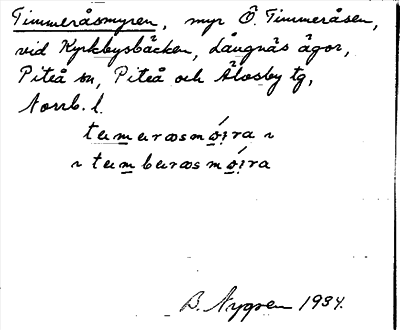 Timmeråsmyren, myr Ö. Timmeråsen,
vid Kyrkbysbäcken, Långnäs ägor,
Piteå sn, Piteå och Älvsby tg,
Norrb. l.
B. Nygren 1934.